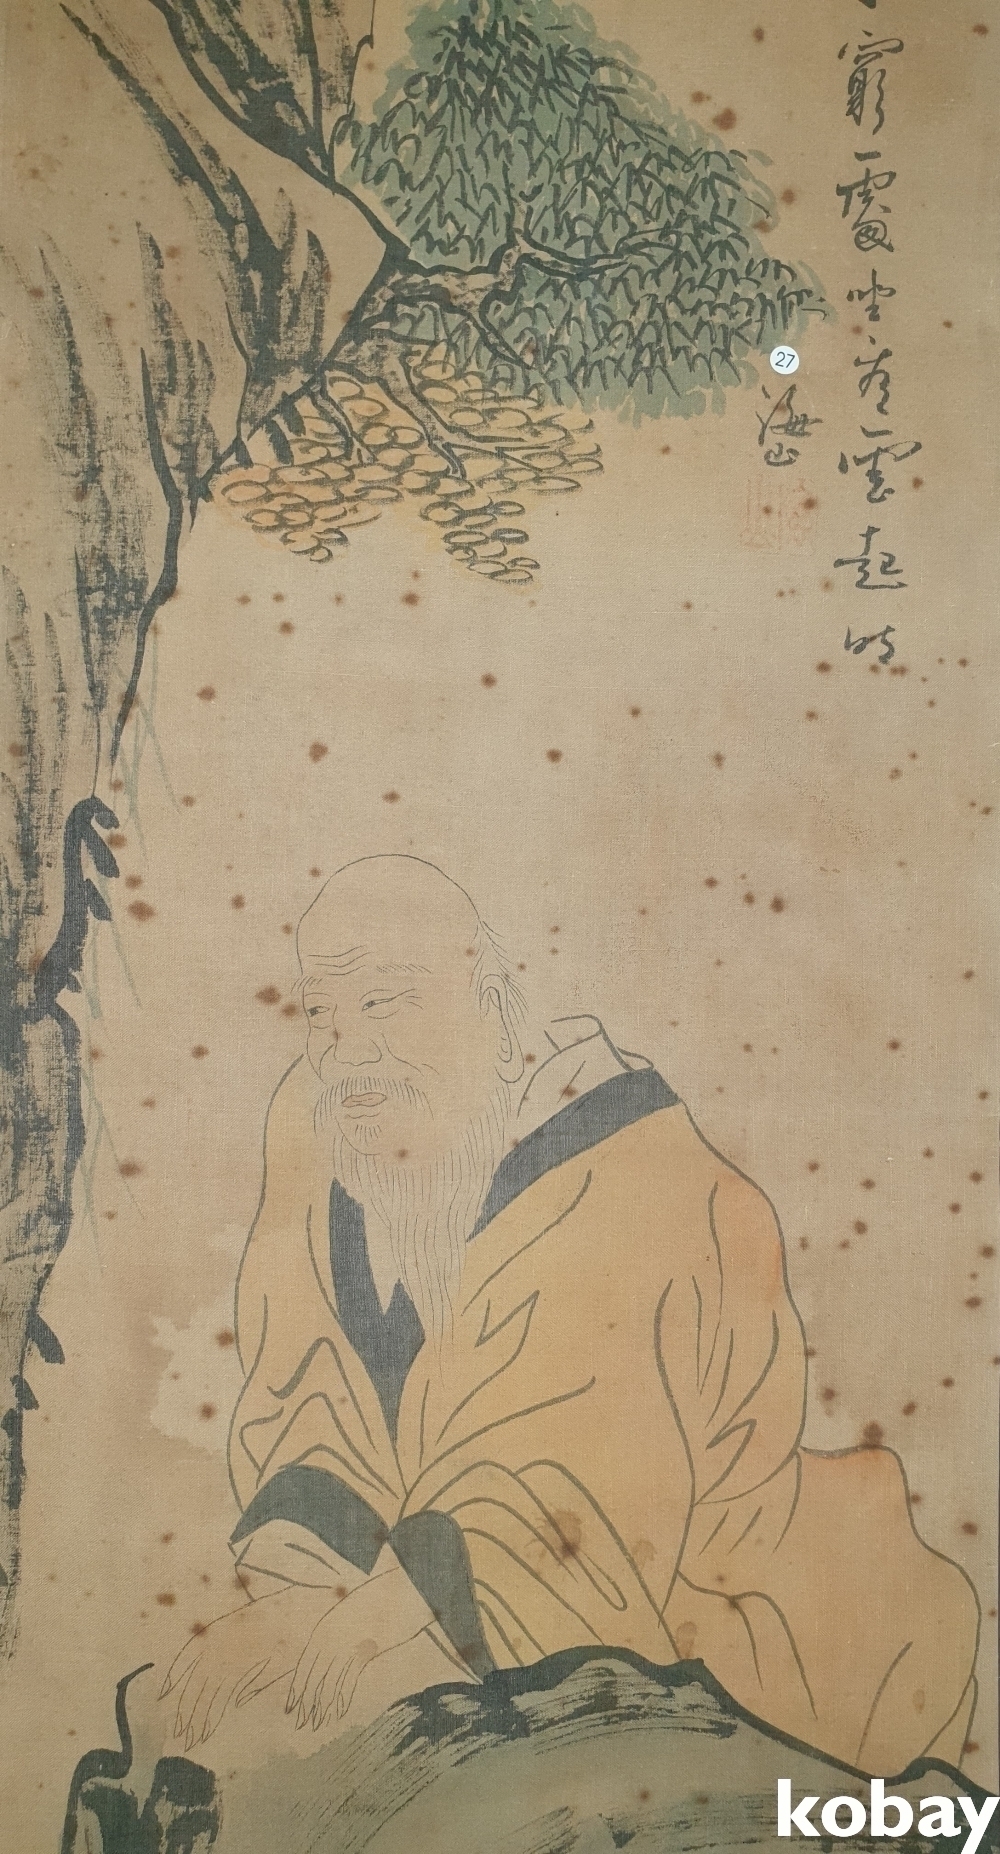 窮處坐看雲起時
海山
27
kobay